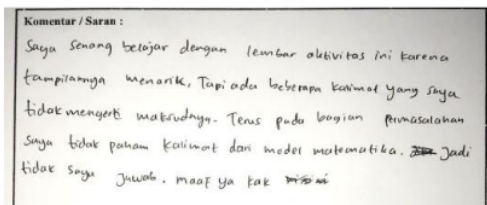 Komentar / Saran :
Saya senang belajar dengan lembar aktivitas ini karena
tampilannya menarik, Tapi ada beberapa kalimat yang saya
tidak mengerti maksudnya. Terus pada bagian permasalahan
Saya tidak paham kalimat dan model matematika. Jadi
tidak saya jawab. maaf ya kak